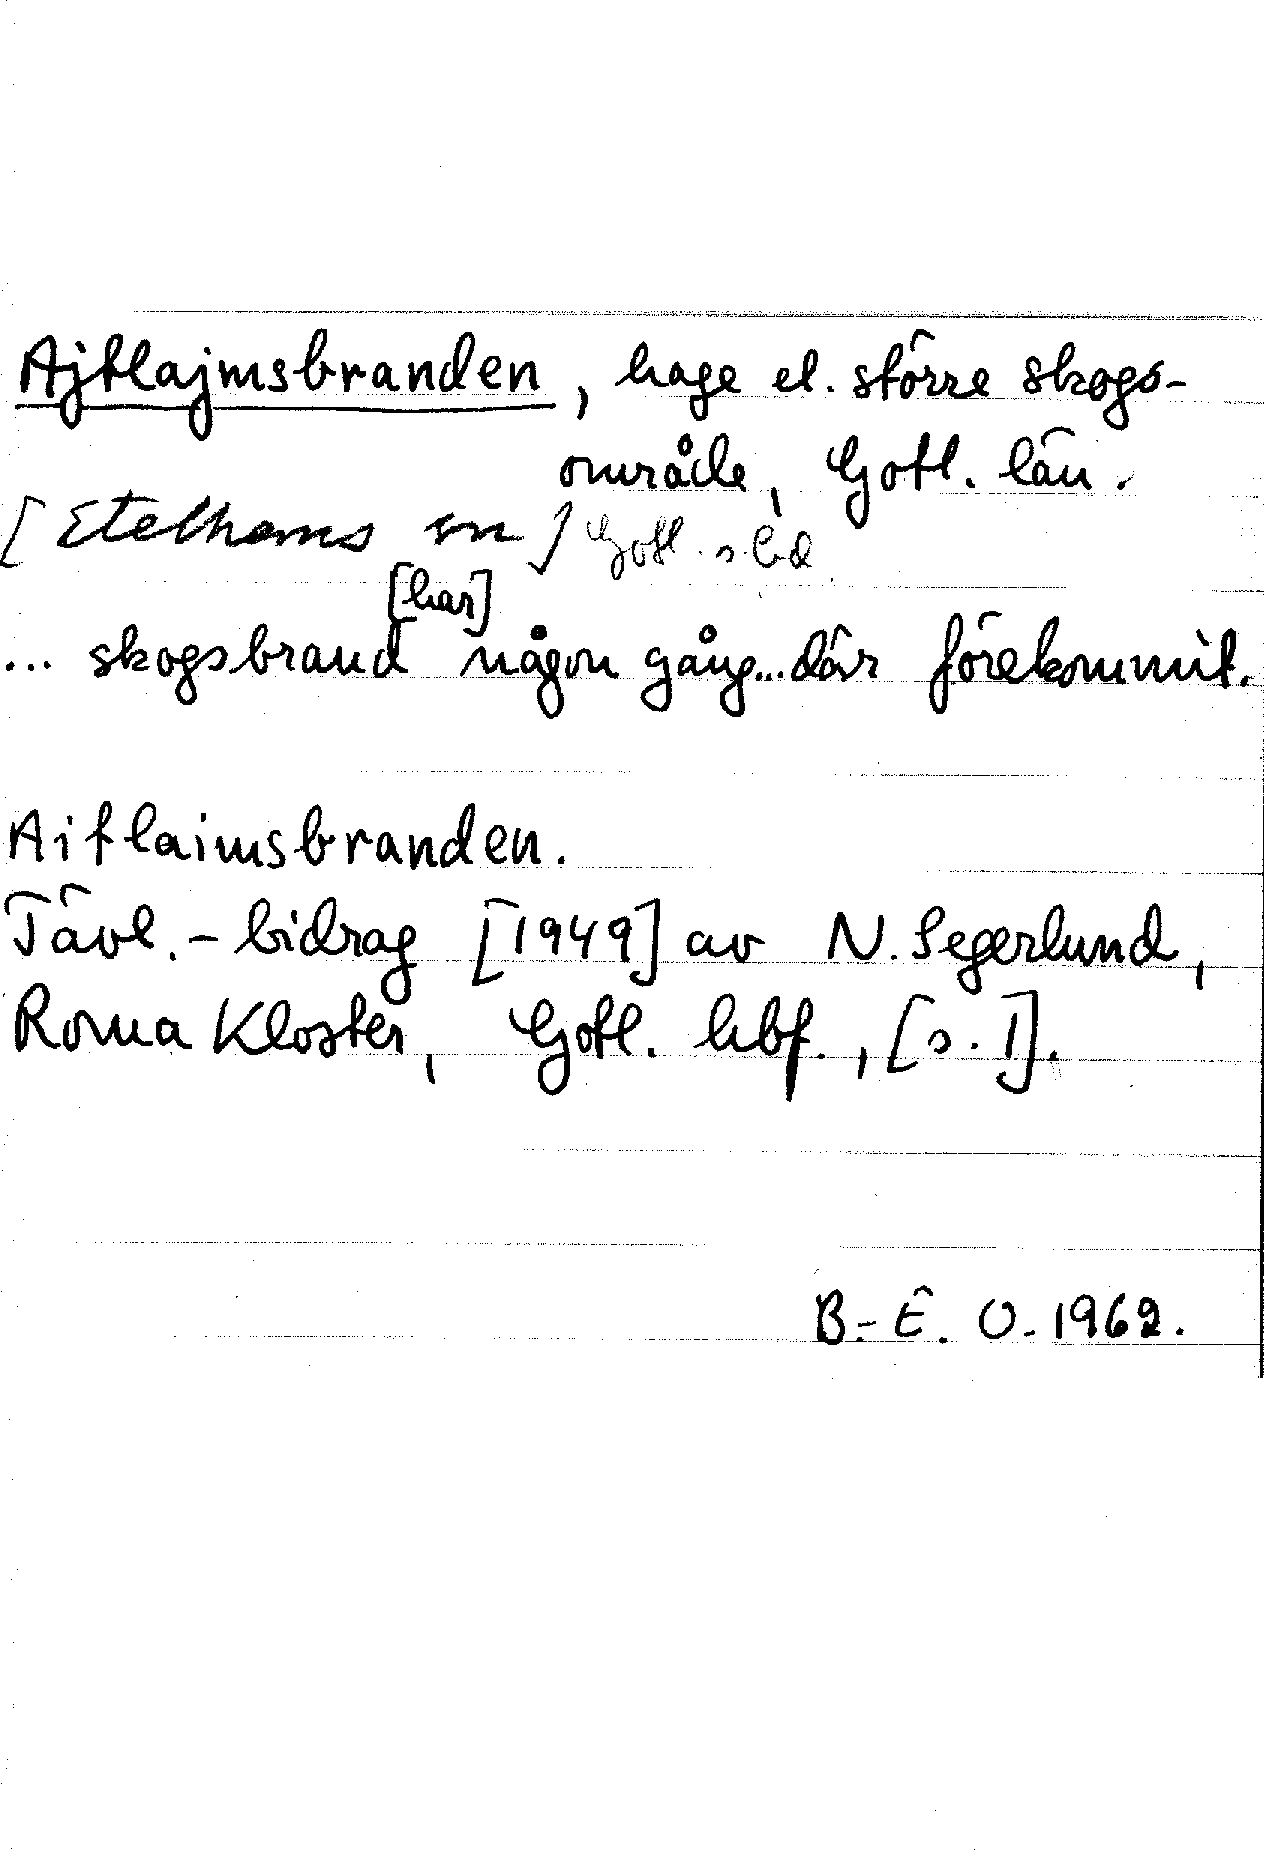 Ajtlajmsbranden, hage el. större skogs-
område, Gotl. län.
[Etelhems sn] Gotl. s. hd
[har]
... skogsbrand någon gång... där förekommit.
Aitlaimsbranden.
Tävl.-bidrag [1949] av N. Segerlund,
Roma Kloster, Gotl. hbf., [s. 1].
B.-E. O. 1962.